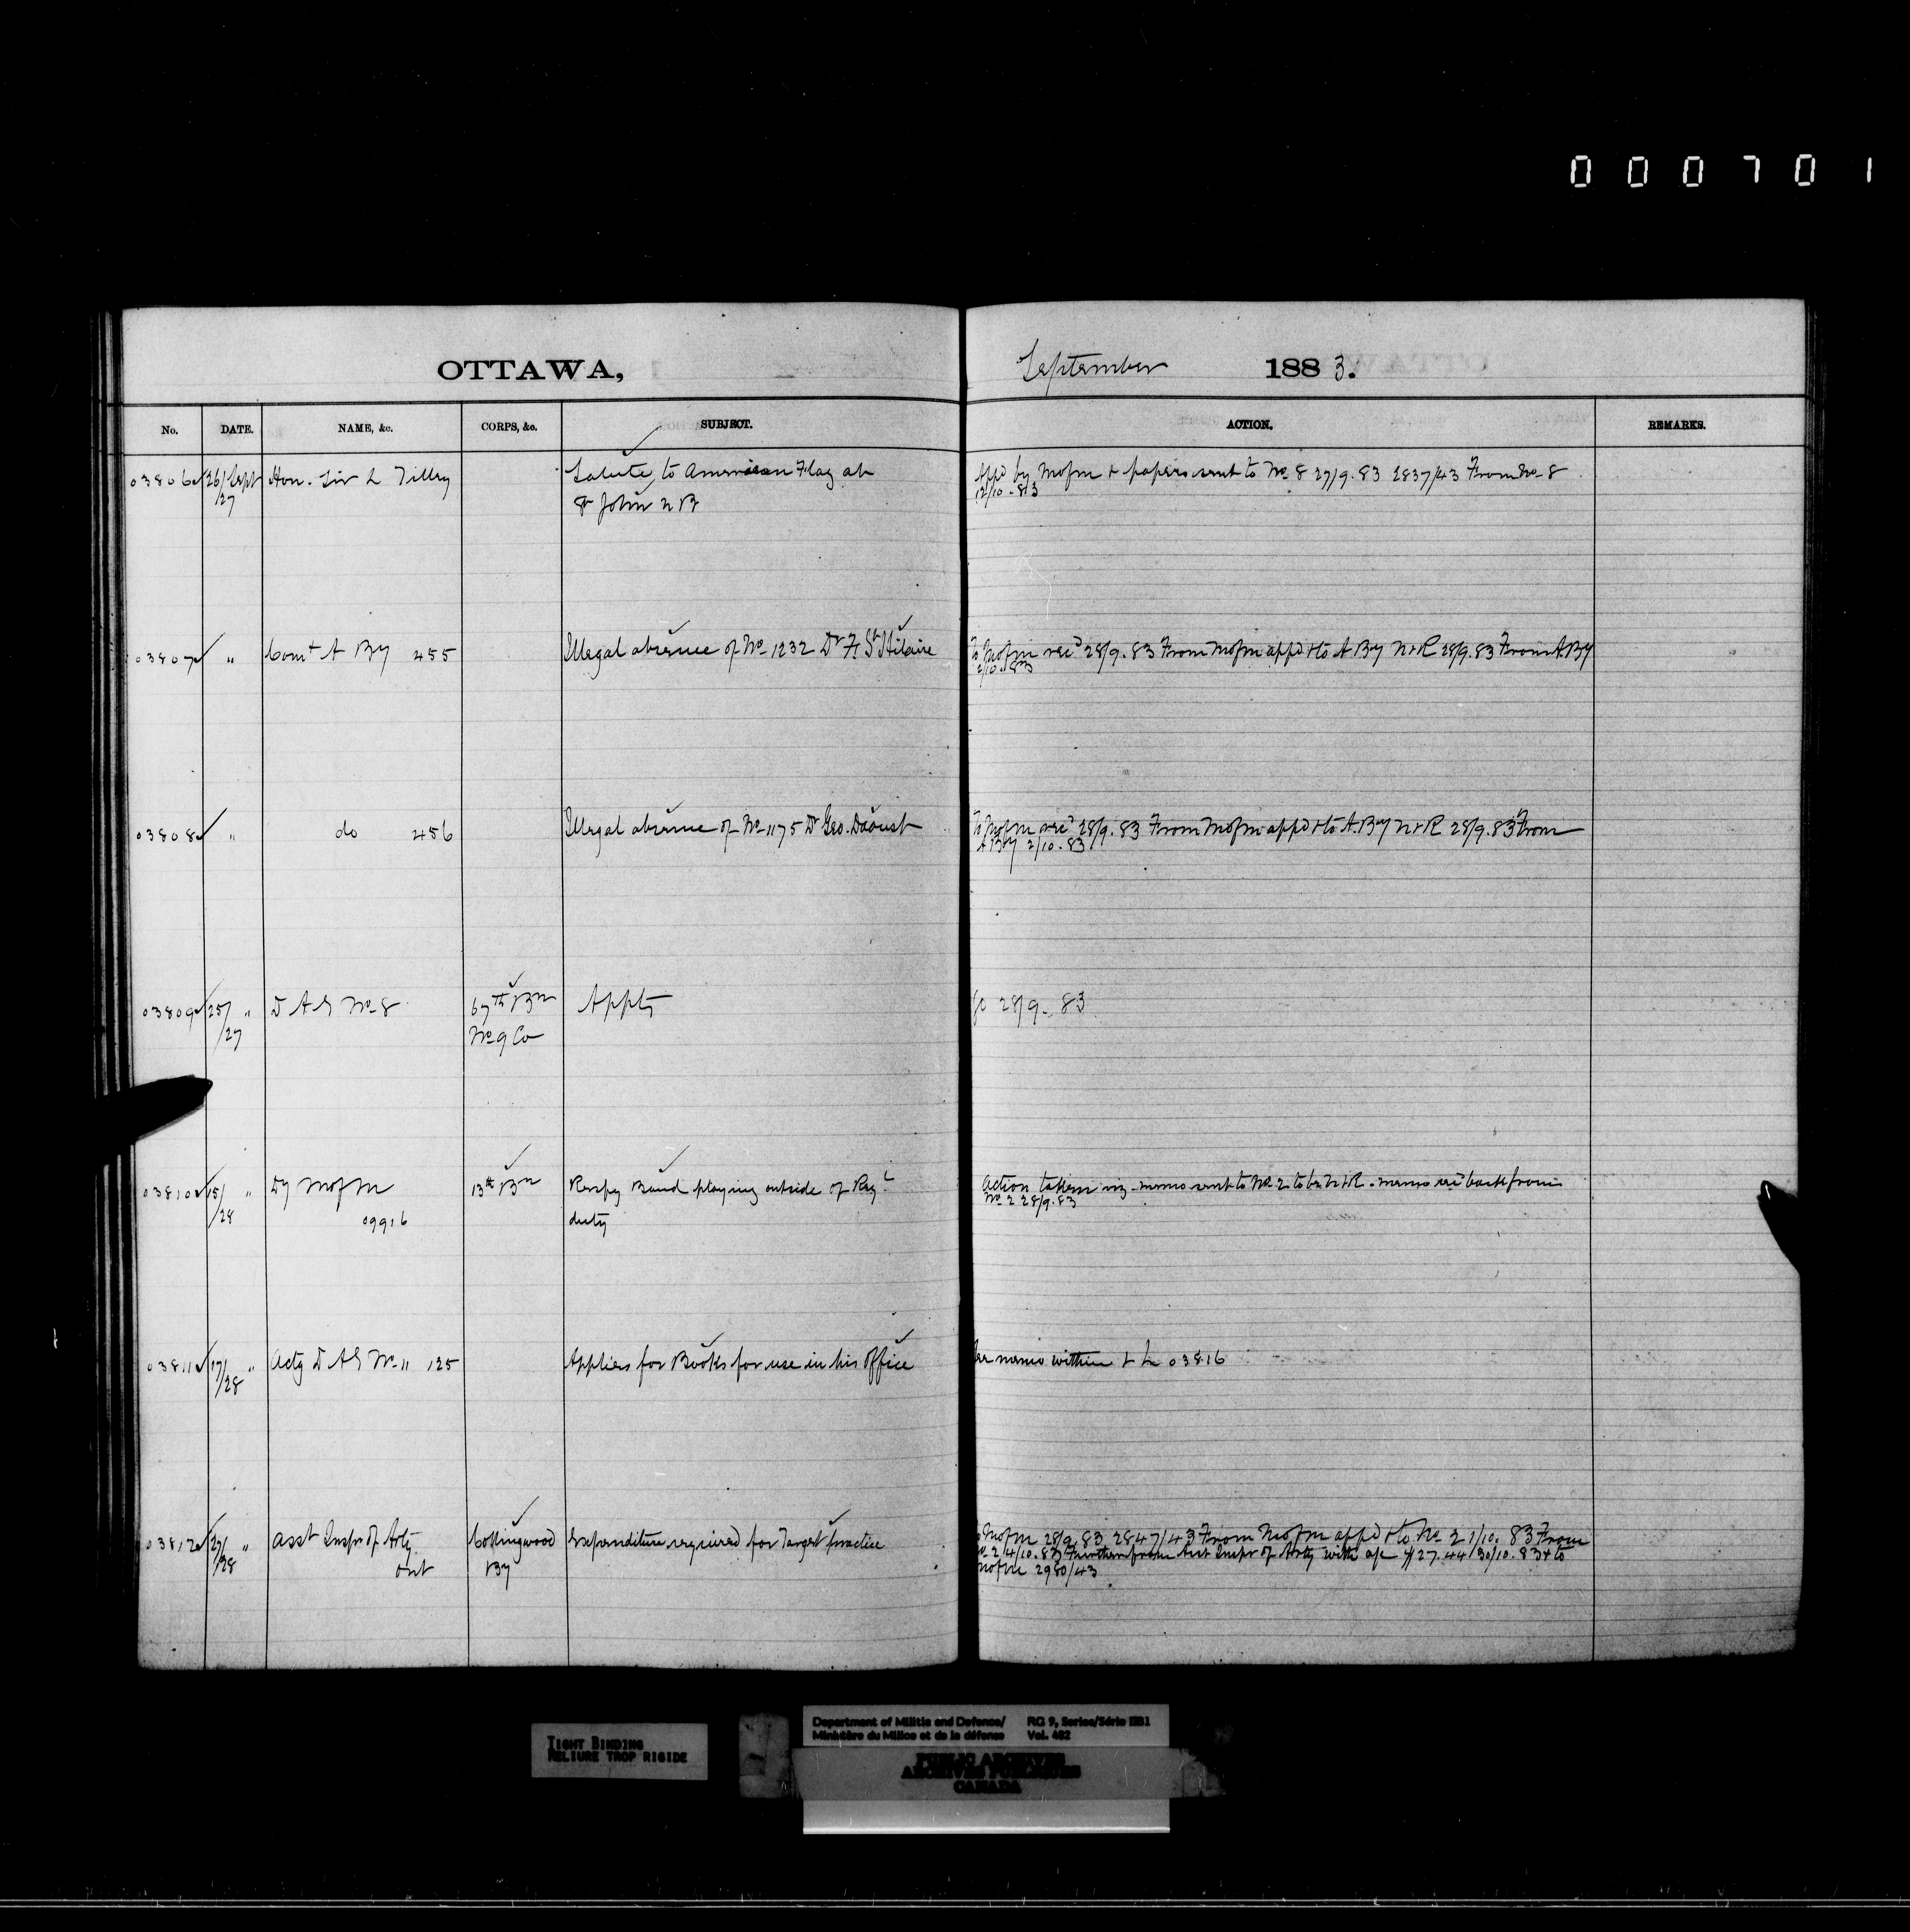 000701
OTTAWA,
September 1883.
No. DATE. NAME, &c. CORPS, &c. SUBJECT. ACTION. REMARKS.
03806 26/27 Sept Hon. Sir L Tilley Salute to American Flag at
St John N B
Appd by MofM & papers sent to No 8 27/9.83 2837/43 From No 8
12/10.83
03807 " Comt A By 455 Illegal absence of No 1232 Dr F. St Hilaire
To MofM recd 28/9.83 From MofM appd & to A By N & R 28/9.83 From A By
2/10.83
03808 " do 456 Illegal absence of No 1175 Dr Geo. Daoust
To MofM recd 28/9.83 From MofM appd & to A. By N & R 28/9.83 From
A By 2/10.83
03809 25/27 " D A G No 8 67th Bn Appts
No 9 Co
28/9.83
03810 15/28 " Dy MofM 13th Bn Respg Band playing outside of Regl
09916 duty
Action taken viz. memo sent to No 2 to be N & R. memo recd back from
No 2 28/9.83
03811 17/28 " Actg D A G No 11 125 Applies for Books for use in his office
See memo within & L 03816
03812 27/28 " Asst Inspr of Arty Collingwood Expenditure required for Target practice
Ont By
MofM 28/9.83 2847/43 From MofM appd & to No 2 1/10.83 From
No 2 4/10.83 Further from Asst Inspr of Arty with a/c $27.44 30/10.83 & to
MofM 2980/43
TIGHT BINDING
RELIURE TROP RIGIDE
Department of Militia and Defence/ RG 9, Series/Série IIB1
Ministère du Milice et de la défense Vol. 482
PUBLIC ARCHIVES
ARCHIVES PUBLIQUES
CANADA